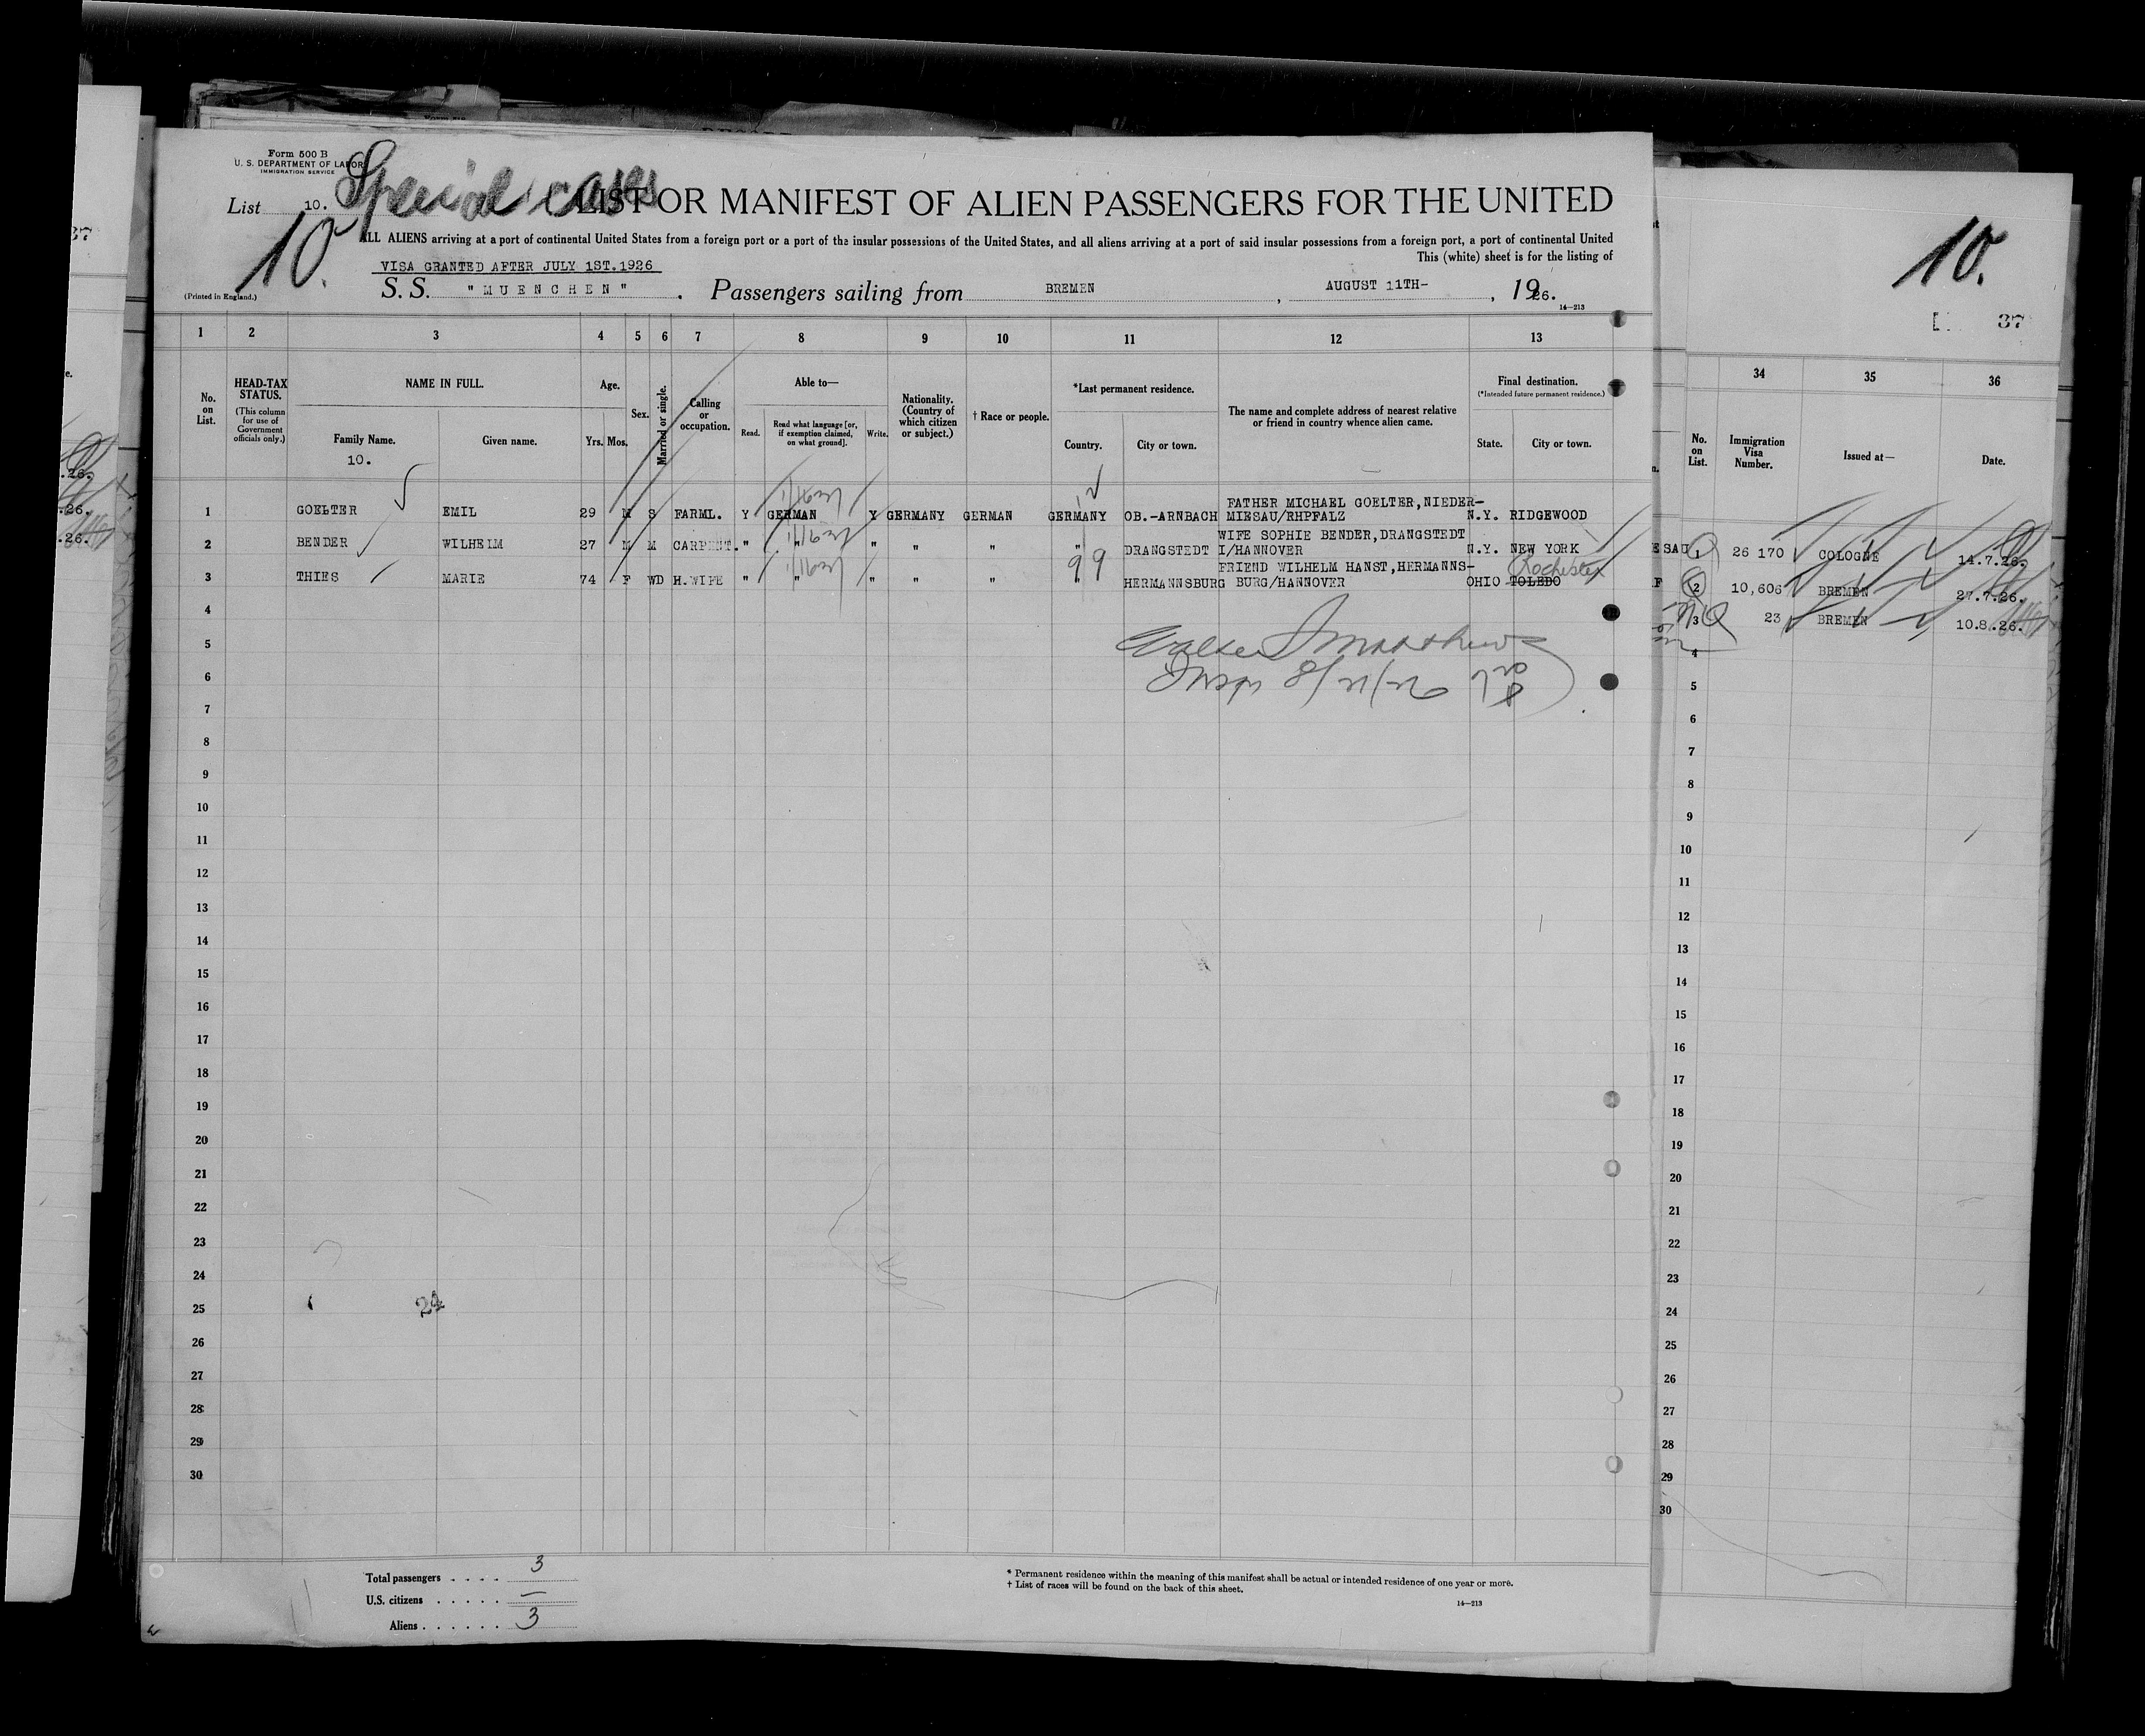 Form 500 B
U. S. DEPARTMENT OF LABOR
IMMIGRATION SERVICE
List 10.
Special cases
10.
LIST OR MANIFEST OF ALIEN PASSENGERS FOR THE UNITED
ALL ALIENS arriving at a port of continental United States from a foreign port or a port of the insular possessions of the United States, and all aliens arriving at a port of said insular possessions from a foreign port, a port of continental United
This (white) sheet is for the listing of
VISA GRANTED AFTER JULY 1ST.1926
(Printed in England.)
S. S. "MUENCHEN". Passengers sailing from BREMEN, AUGUST 11TH-, 1926.
14—213
1 2 3 4 5 6 7 8 9 10 11 12 13
No. on List.
HEAD-TAX STATUS.
(This column for use of Government officials only.)
NAME IN FULL.
Family Name.
10.
Given name.
Age.
Yrs. Mos.
Sex.
Married or single.
Calling or occupation.
Able to—
Read.
Read what language [or, if exemption claimed, on what ground].
Write.
Nationality. (Country of which citizen or subject.)
† Race or people.
*Last permanent residence.
Country.
City or town.
The name and complete address of nearest relative or friend in country whence alien came.
Final destination.
(*Intended future permanent residence.)
State.
City or town.
1 GOELTER EMIL 29 M S FARML. Y GERMAN Y GERMANY GERMAN GERMANY OB.-ARNBACH FATHER MICHAEL GOELTER,NIEDER-
MIESAU/RHPFALZ N.Y. RIDGEWOOD
2 BENDER WILHELM 27 M M CARPENT. " " " " " " DRANGSTEDT WIFE SOPHIE BENDER,DRANGSTEDT
I/HANNOVER N.Y. NEW YORK
3 THIES MARIE 74 F WD H.WIFE " " " " " " HERMANNSBURG FRIEND WILHELM HANST,HERMANNS-
BURG/HANNOVER OHIO TOLEDO
Rochester
99
4
5
6
7
8
9
10
11
12
13
14
15
16
17
18
19
20
21
22
23
24
25
26
27
28
29
30
24
Total passengers . . . . 3
U.S. citizens . . . . . —
Aliens . . . . . . 3
* Permanent residence within the meaning of this manifest shall be actual or intended residence of one year or more.
† List of races will be found on the back of this sheet.
14—213
10.
37
34 35 36
No. on List.
Immigration Visa Number.
Issued at—
Date.
ESAU 1 26 170 COLOGNE 14.7.26.
F 2 10,606 BREMEN 27.7.26.
3 23 BREMEN 10.8.26.
4
5
6
7
8
9
10
11
12
13
14
15
16
17
18
19
20
21
22
23
24
25
26
27
28
29
30
37
.26.
.26.
.26.